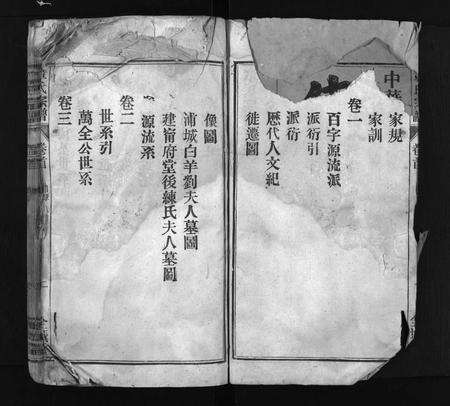 中
家規
家訓
卷一
百字源流派
派衍引
派衍
歷代人文紀
徙遷圖
像圖
浦城白羊劉夫人墓圖
建甯府堂後練氏夫人墓圖
源流系
卷二
世系引
萬全公世系
卷三
氏宗譜
卷首